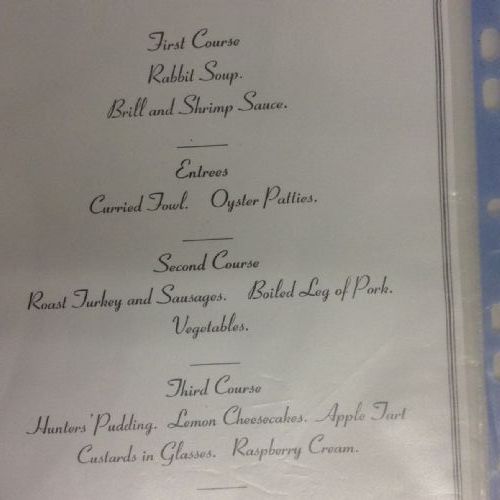 First Course
Rabbit Soup.
Brill and Shrimp Sauce.
Entrees
Curried Fowl. Oyster Patties.
Second Course
Roast Turkey and Sausages. Boiled Leg of Pork.
Vegetables.
Third Course
Hunters' Pudding. Lemon Cheesecakes. Apple Tart
Custards in Glasses. Raspberry Cream.